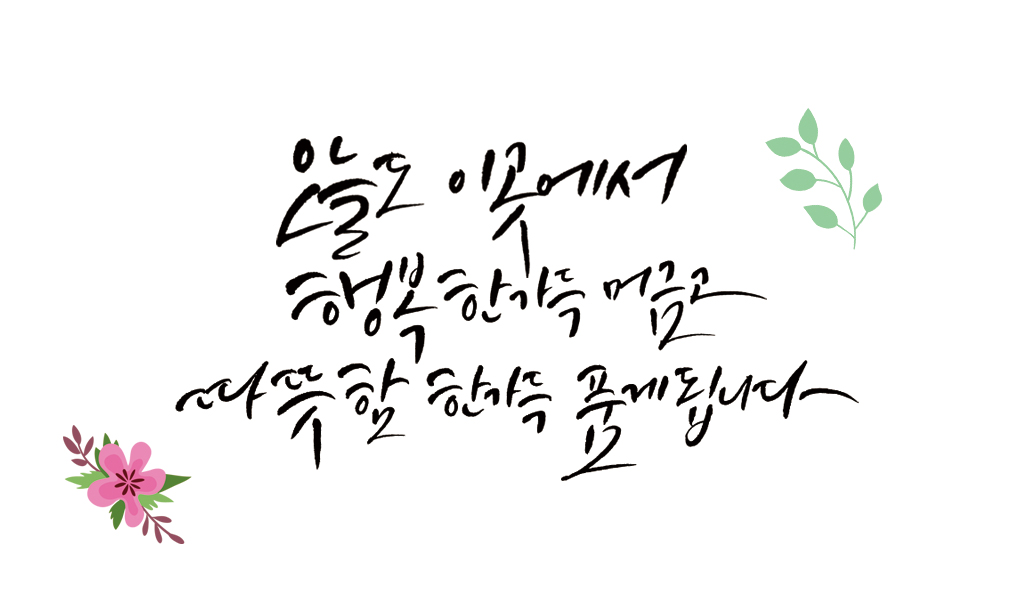 오늘도 이곳에서
행복 한가득 머금고
따뜻함 한가득 품게 됩니다